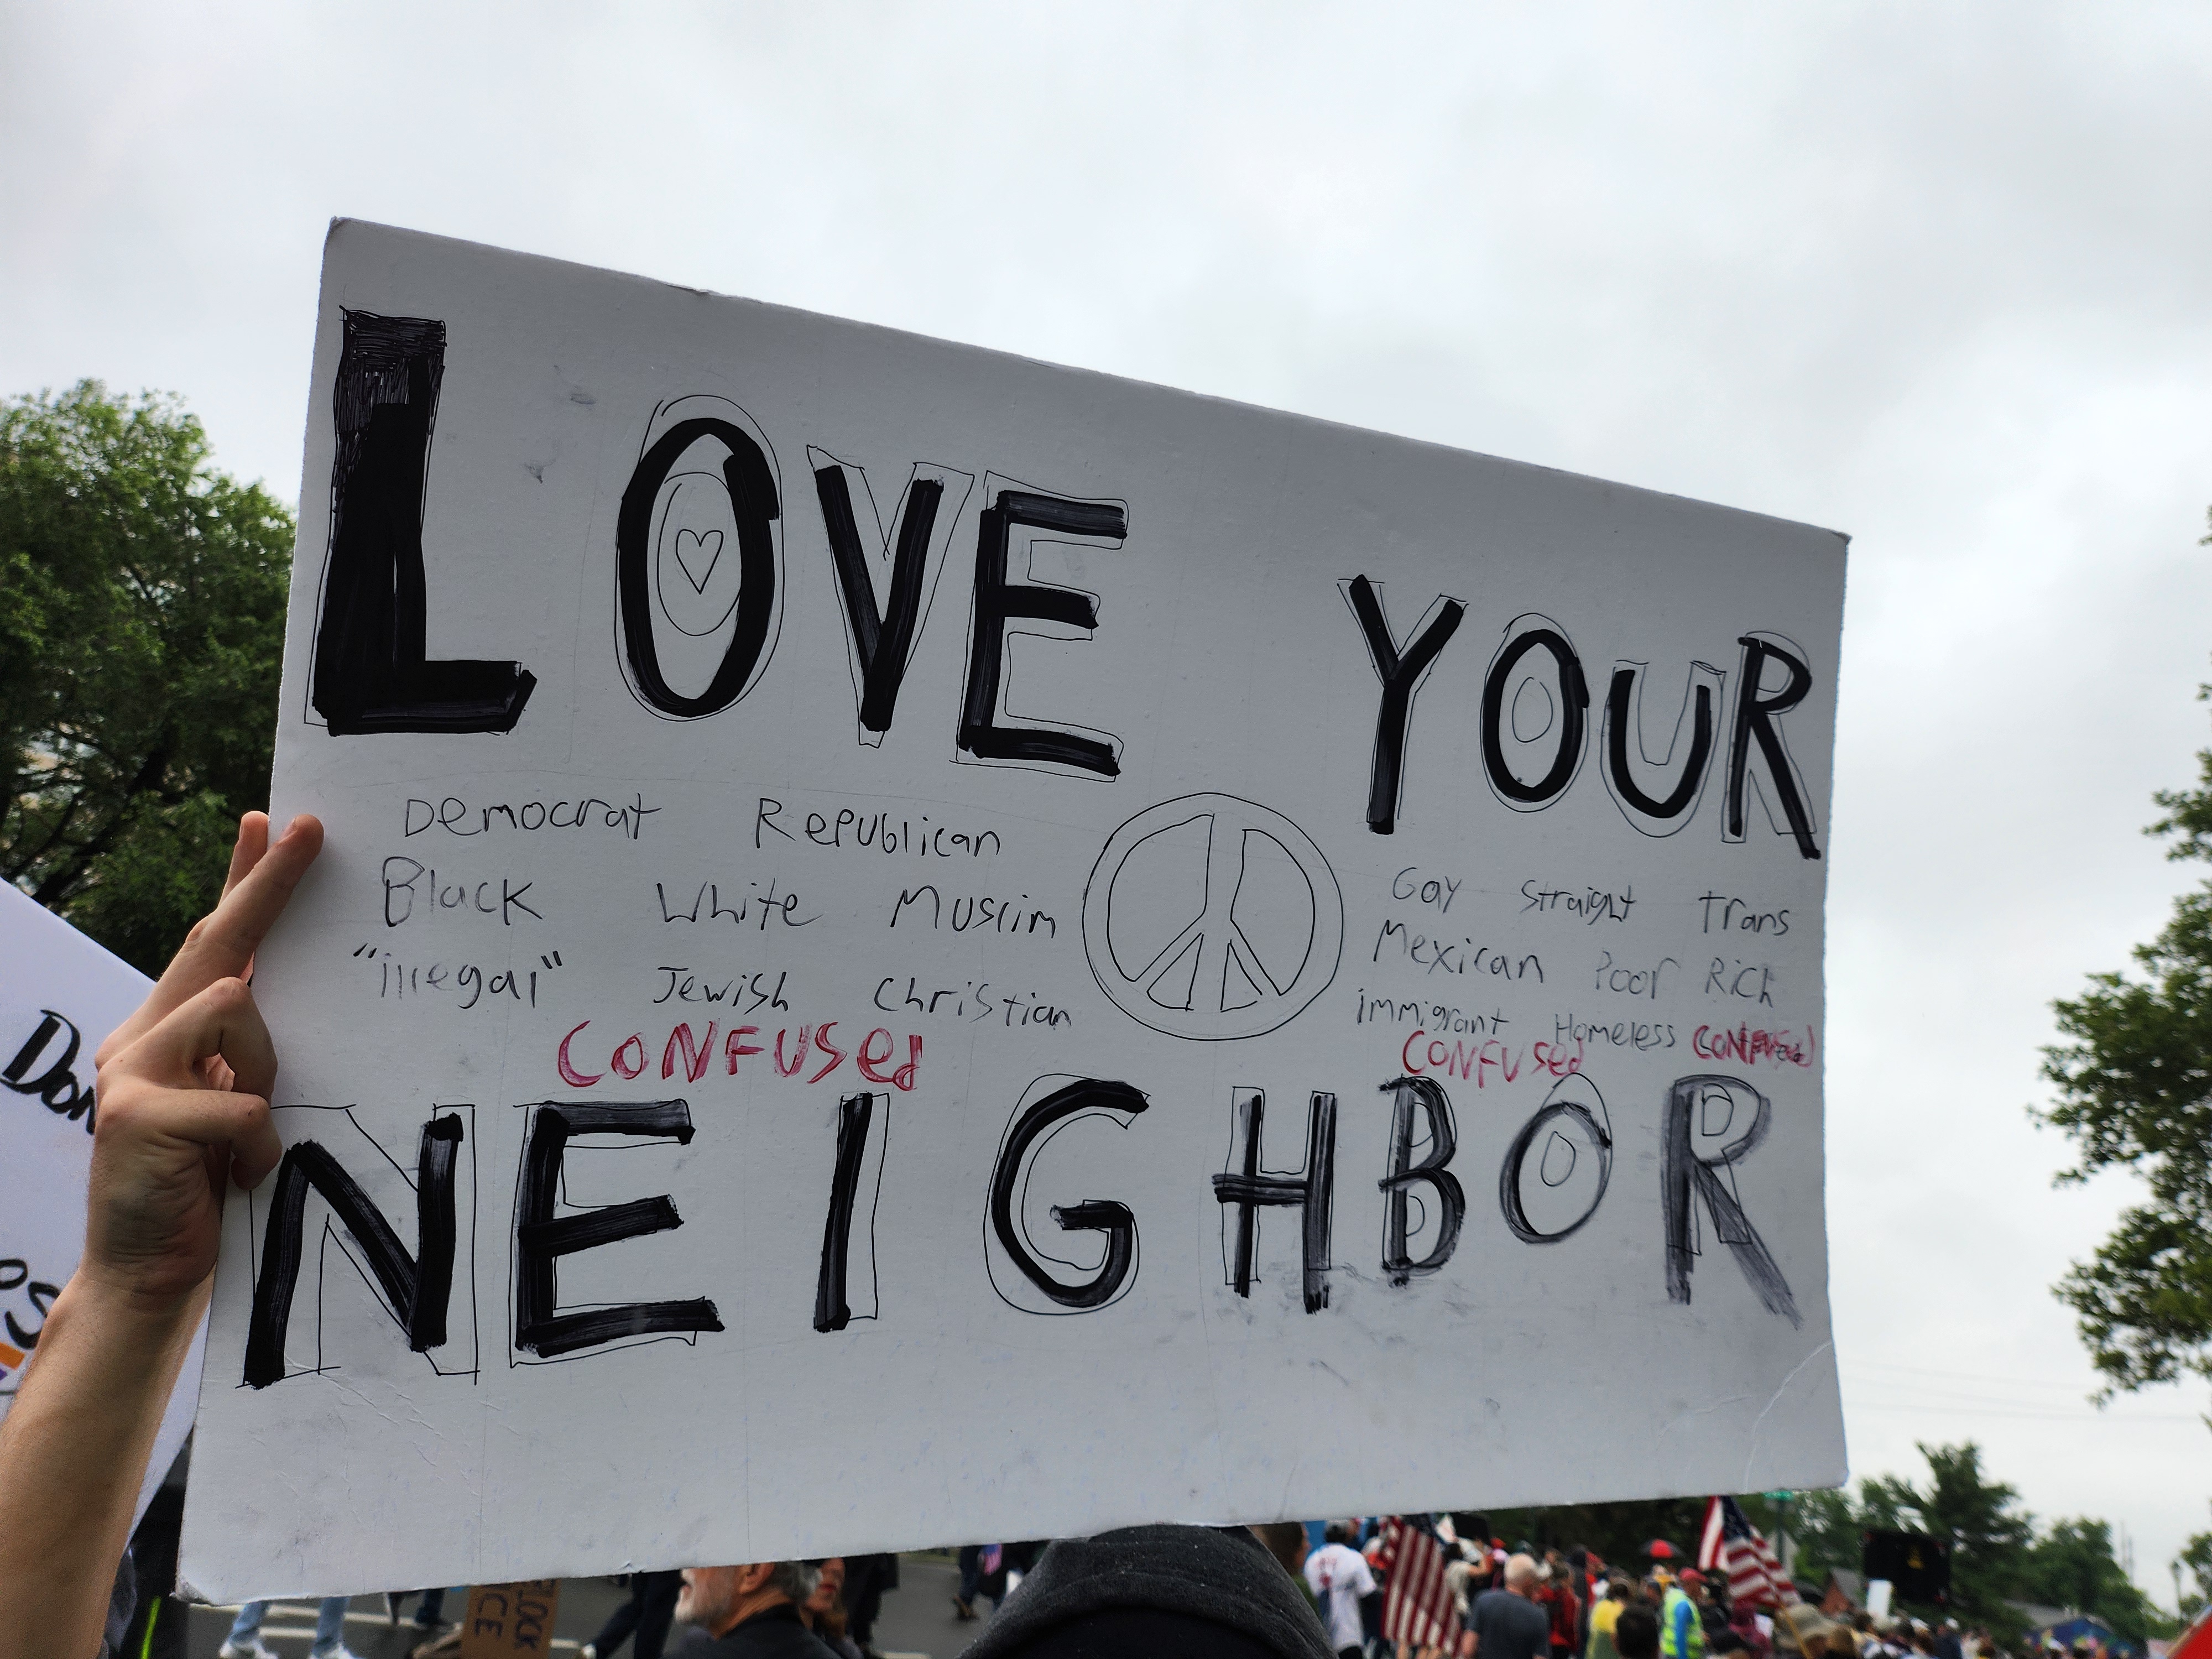 LOVE YOUR
Democrat Republican
Black White Muslim
"illegal" Jewish Christian
CONFUSed
Gay Straight Trans
Mexican Poor Rich
immigrant Homeless CONFUSed
CONFUSed
NEIGHBOR
DON
OS
LOCK
ICE